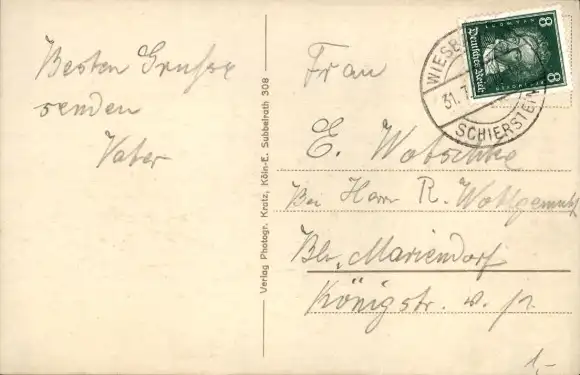 Besten Grusse
senden
Vater
Verlag Photogr. Kratz, Köln-E. Subbelrath 308
Frau
E. Wotschke
Bei Herrn R. Wohlgemuth
Bln. Mariendorf
Königstr. w. p.
WIESB
31.7.
SCHIERSTEIN
8 8
Deutsches Reich
1,-